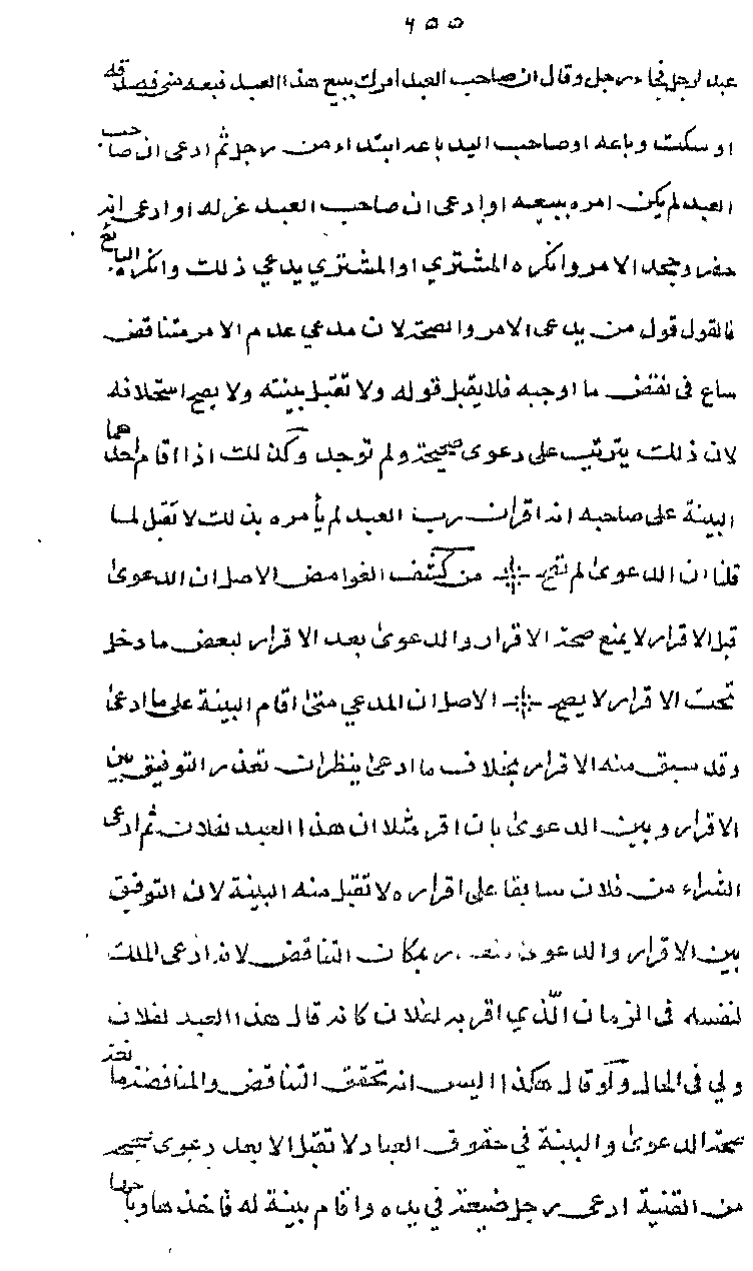 ٤٥٥
عبد لرجل فجاء رجل وقال ان صاحب العبد امرك ببيع هذا العبد فبعه منى فصدقه
او سكت وباعه او صاحب اليد باعه ابتداء من رجل ثم ادعى ان صاحب
العبد لم يكن امره ببيعه او ادعى ان صاحب العبد عزله او ادعى انه
حضر وجحد الامر وانكره المشتري او المشتري يدعي ذلك وانكره البائع
فالقول قول من يدعى الامر والصحة لان مدعي عدم الامر متناقض
ساع فى نقض ما اوجبه فلا يقبل قوله ولا تقبل بينته ولا يصح استحلافه
لان ذلك يترتب على دعوى صحيحة ولم توجد وكذلك اذا اقام احدهما
البينة على صاحبه انه اقر ان رب العبد لم يأمره بذلك لا تقبل لما
قلنا ان الدعوى لم تصح من كشف الغوامض الاصل ان الدعوى
قبل الاقرار لا يمنع صحة الاقرار والدعوى بعد الاقرار لبعض ما دخل
تحت الاقرار لا يصح الاصل ان المدعي متى اقام البينة على ما ادعى
وقد سبق منه الاقرار بخلاف ما ادعى ينظر ان تعذر التوفيق بين
الاقرار وبين الدعوى بان اقر مثلا ان هذا العبد لفلان ثم ادعى
الشراء من فلان سابقا على اقراره لا تقبل منه البينة لان التوفيق
بين الاقرار والدعوى متعذر بمكان التناقض لانه ادعى الملك
لنفسه فى الزمان الّذي اقر به لفلان كانه قال هذا العبد لفلان
ولي فى الحال ولو قال هكذا اليس انه تحقق التناقض والمناقضة
صحة الدعوى والبينة في حقوق العباد لا تقبل الا بعد دعوى صحيحه
من القنية ادعى رجل ضيعة في يده واقام بينة له فاخذها